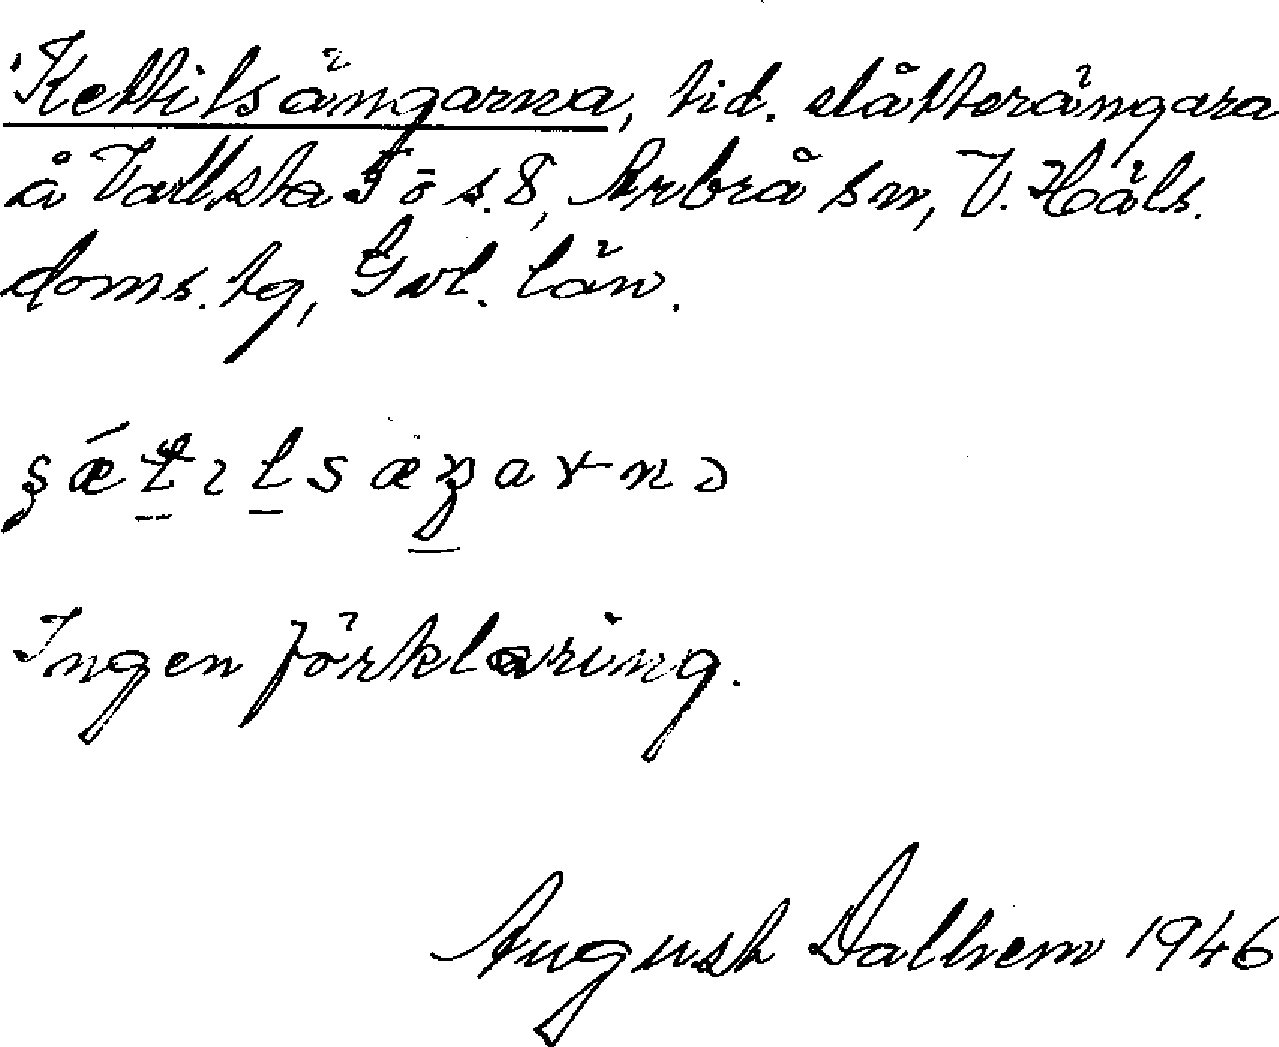 Kettilsängarna, tid. slåtterängara
å Vallsta Fö s. 8, Arbrå sn, V. Häls.
doms. tg, Gvl. län.
Ingen förklaring.
August Dalhem 1946